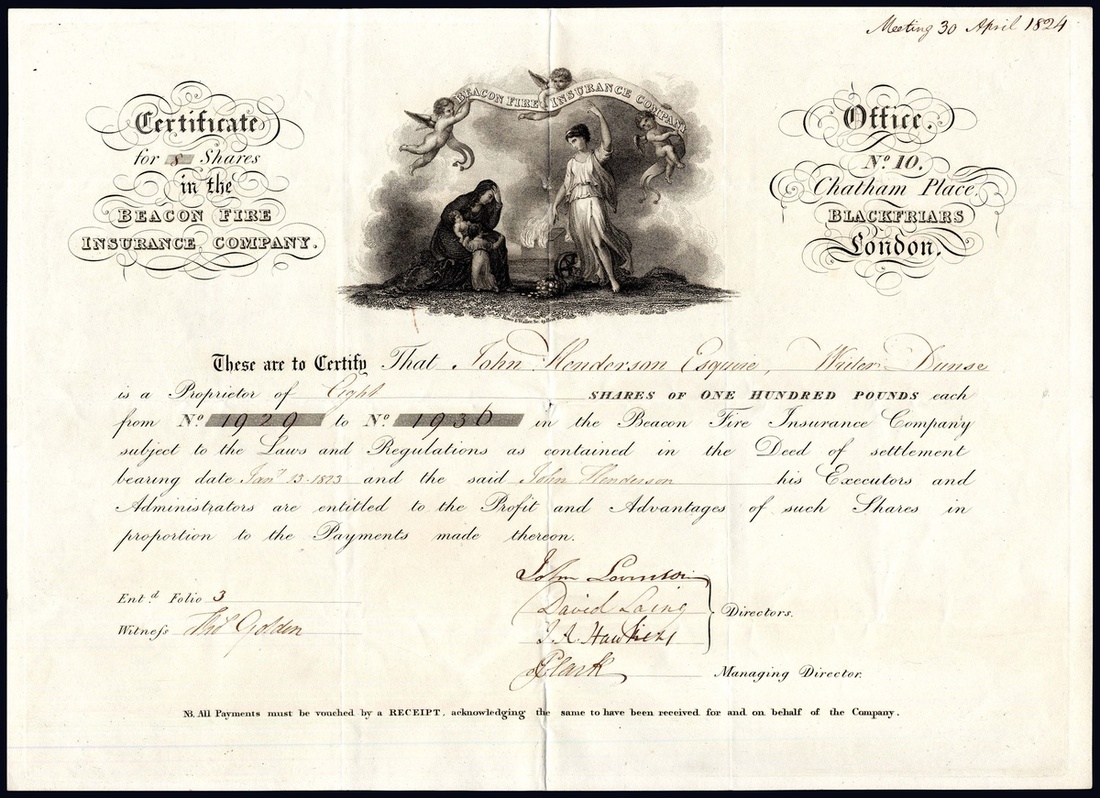 Meeting 30 April 1824
BEACON FIRE INSURANCE COMPANY
Certificate
for 8 Shares
in the
BEACON FIRE
INSURANCE COMPANY.
Office.
No. 10.
Chatham Place,
BLACKFRIARS
London.
These are to Certify That John Henderson Esquire, Writer Dunse
is a Proprietor of Eight SHARES OF ONE HUNDRED POUNDS each
from No 1929 to No 1936 in the Beacon Fire Insurance Company
subject to the Laws and Regulations as contained in the Deed of settlement
bearing date Jany 13 1823 and the said John Henderson his Executors and
Administrators are entitled to the Profit and Advantages of such Shares in
proportion to the Payments made thereon.
John
David Laing
Directors.
J A Hawkins
Clark
Managing Director.
Entd Folio 3
Witness Thos Golden
NB. All Payments must be vouched by a RECEIPT, acknowledging the same to have been received for and on behalf of the Company.